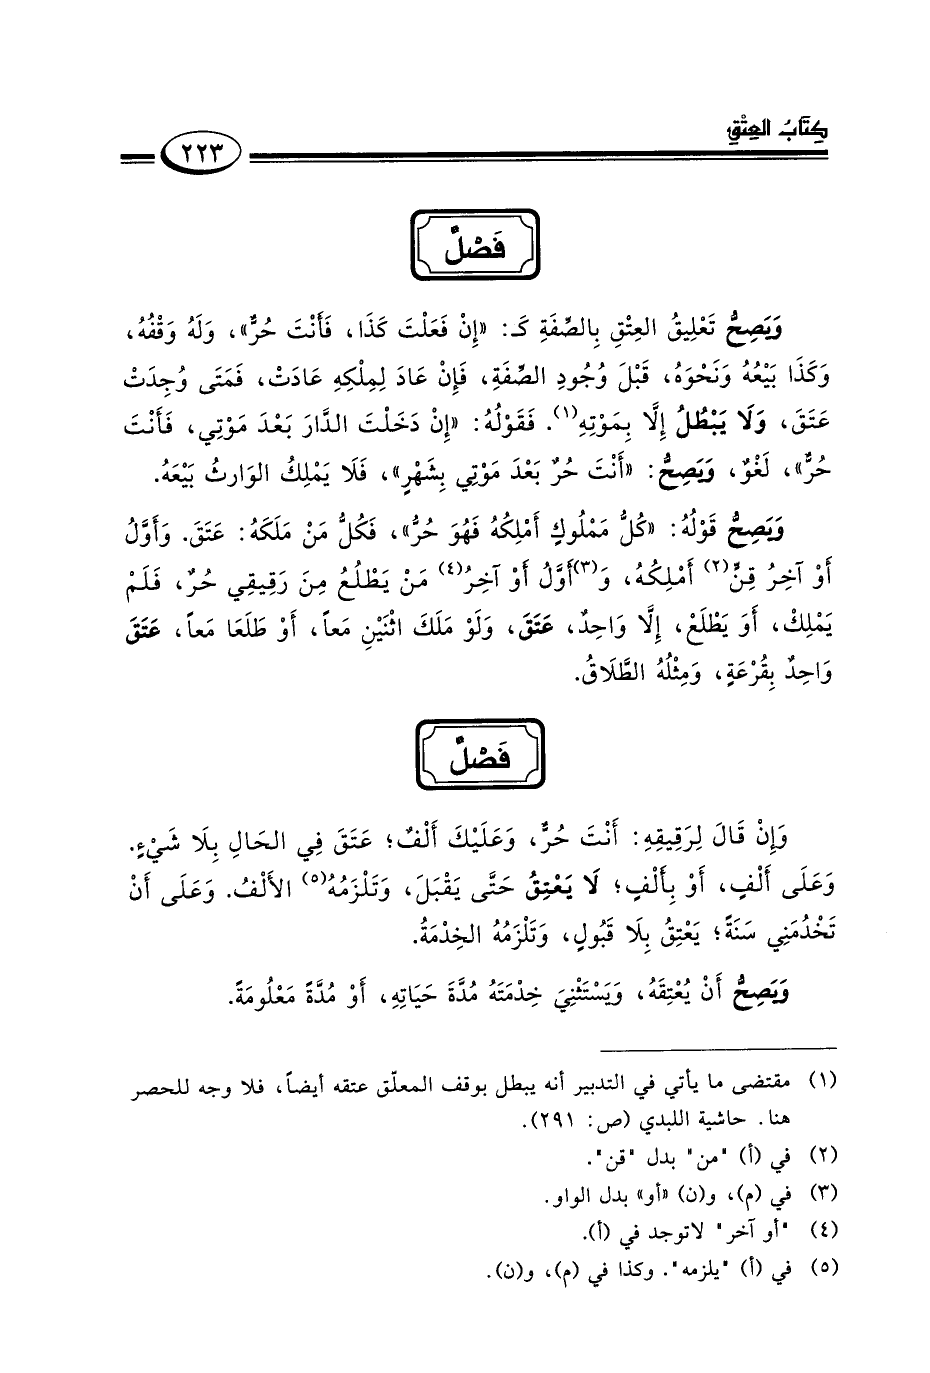 كِتَابُ العِتْقِ
٢٢٣
فَصْلٌ
وَيَصِحُّ تَعْلِيقُ العِتْقِ بِالصِّفَةِ كَـ: «إِنْ فَعَلْتَ كَذَا، فَأَنْتَ حُرٌّ»، وَلَهُ وَقْفُهُ،
وَكَذَا بَيْعُهُ وَنَحْوَهُ، قَبْلَ وُجُودِ الصِّفَةِ، فَإِنْ عَادَ لِمِلْكِهِ عَادَتْ، فَمَتَى وُجِدَتْ
عَتَقَ، وَلَا يَبْطُلُ إِلَّا بِمَوْتِهِ(١). فَقَوْلُهُ: «إِنْ دَخَلْتَ الدَّارَ بَعْدَ مَوْتِي، فَأَنْتَ
حُرٌّ»، لَغْوٌ، وَيَصِحُّ: «أَنْتَ حُرٌ بَعْدَ مَوْتِي بِشَهْرٍ»، فَلَا يَمْلِكُ الوَارِثُ بَيْعَهُ.
وَيَصِحُّ قَوْلُهُ: «كُلُّ مَمْلُوكٍ أَمْلِكُهُ فَهُوَ حُرٌّ»، فَكُلُّ مَنْ مَلَكَهُ: عَتَقَ. وَأَوَّلُ
أَوْ آخِرُ قِنٍّ(٢) أَمْلِكُهُ، وَ(٣)أَوَّلُ أَوْ آخِرُ(٤) مَنْ يَطْلُعُ مِنَ رَقِيقِي حُرٌ، فَلَمْ
يَمْلِكْ، أَوَ يَطْلَعْ، إِلَّا وَاحِدٌ، عَتَقَ، وَلَوْ مَلَكَ اثْنَيْنِ مَعاً، أَوْ طَلَعَا مَعاً، عَتَقَ
وَاحِدٌ بِقُرْعَةٍ، وَمِثْلُهُ الطَّلَاقُ.
فَصْلٌ
وَإِنْ قَالَ لِرَقِيقِهِ: أَنْتَ حُرٌّ، وَعَلَيْكَ أَلْفٌ؛ عَتَقَ فِي الحَالِ بِلَا شَيْءٍ.
وَعَلَى أَلْفٍ، أَوْ بِأَلْفٍ؛ لَا يَعْتِقُ حَتَّى يَقْبَلَ، وَتَلْزَمُهُ(٥) الأَلْفُ. وَعَلَى أَنْ
تَخْدُمَنِي سَنَةً؛ يَعْتِقُ بِلَا قَبُولٍ، وَتَلْزَمُهُ الخِدْمَةُ.
وَيَصِحُّ أَنْ يُعْتِقَهُ، وَيَسْتَثْنِيَ خِدْمَتَهُ مُدَّةَ حَيَاتِهِ، أَوْ مُدَّةً مَعْلُومَةً.
(١) مقتضى ما يأتي في التدبير أنه يبطل بوقف المعلّق عتقه أيضاً، فلا وجه للحصر
هنا. حاشية اللبدي (ص: ٢٩١).
(٢) في (أ) "من" بدل "قن".
(٣) في (م)، و(ن) «أو» بدل الواو.
(٤) "أو آخر" لاتوجد في (أ).
(٥) في (أ) "يلزمه". وكذا في (م)، و(ن).